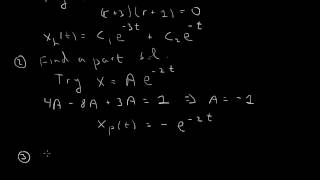 Try
(r+3)(r+1)=0
x_h(t) = c_1 e^{-3t} + c_2 e^{-t}
② Find a part sol.
Try x = A e^{-2t}
4A - 8A + 3A = 1 ⇒ A = -1
x_p(t) = - e^{-2t}
③